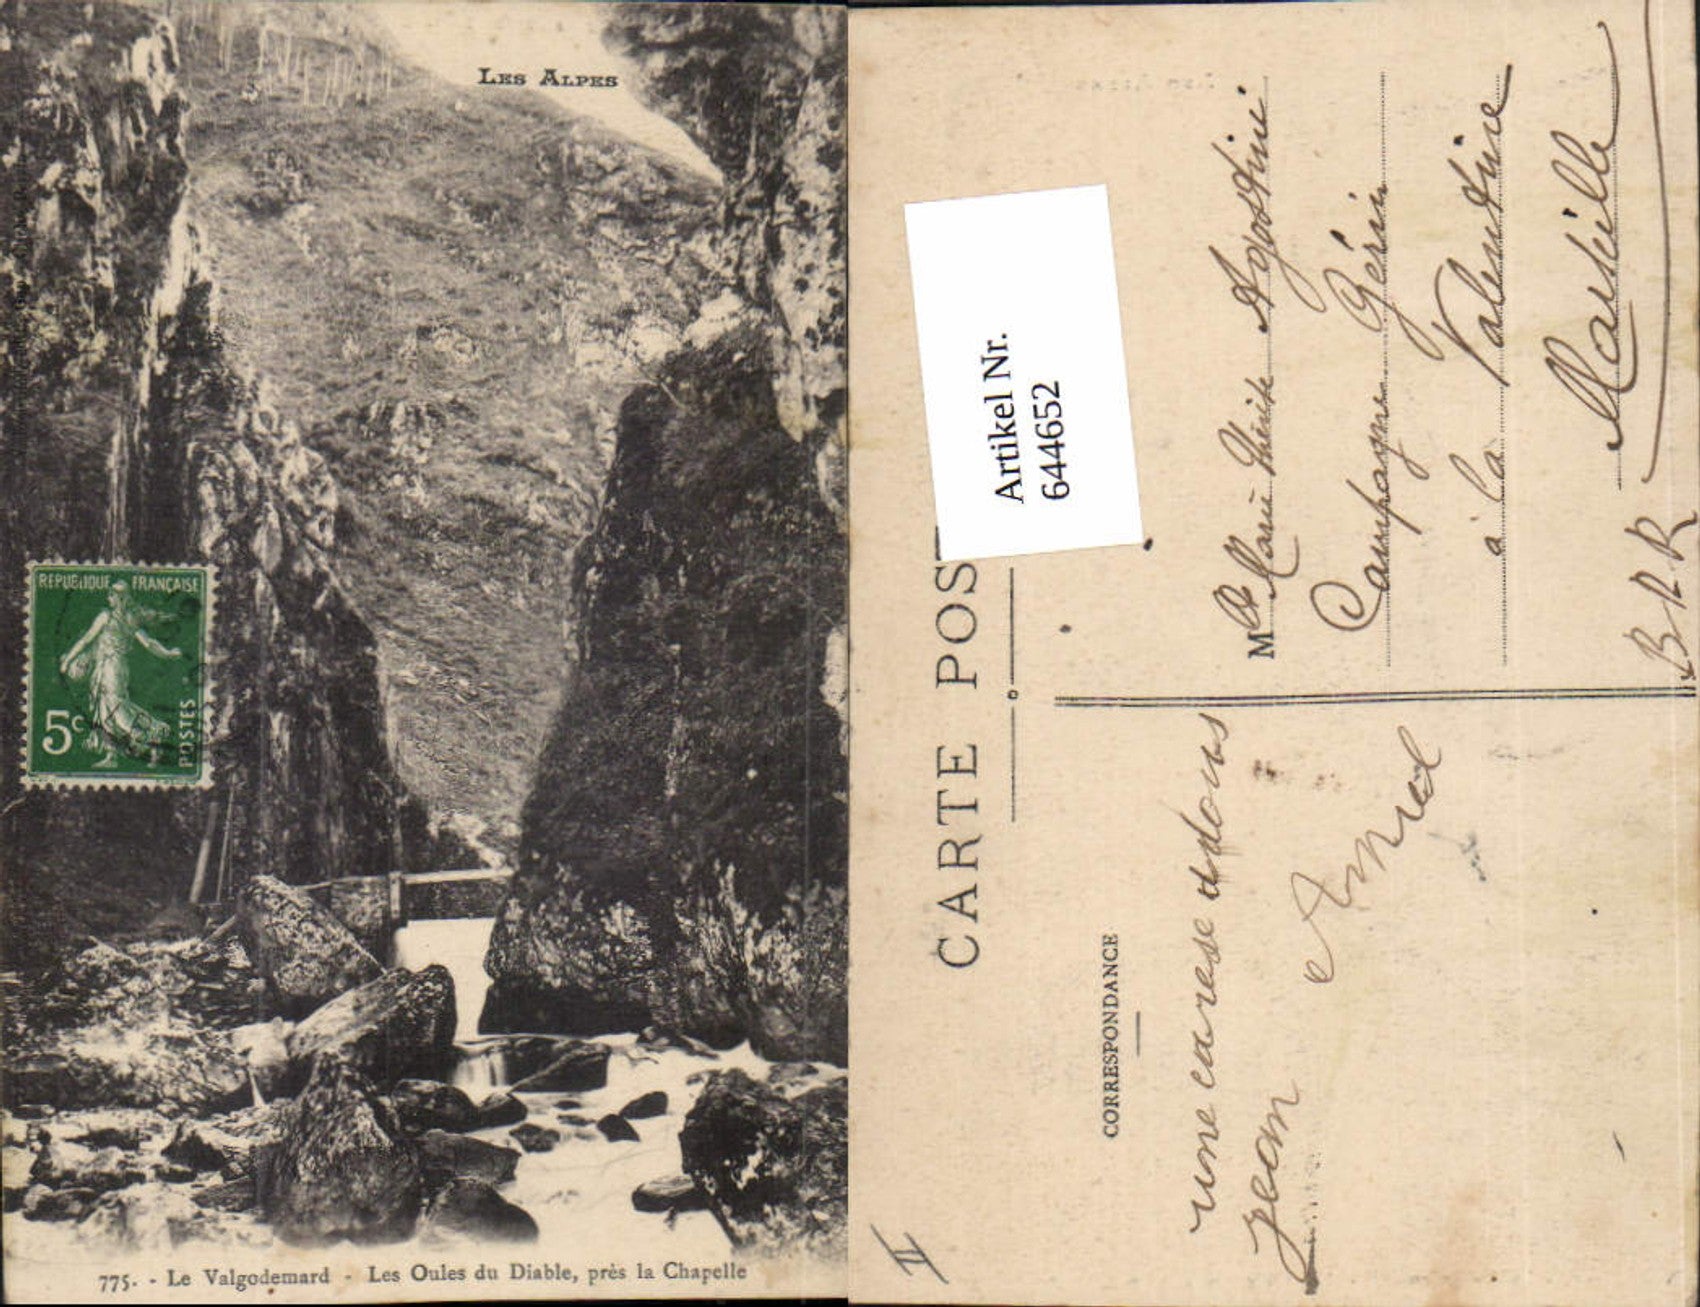 LES ALPES
REPUBLIQUE FRANÇAISE
5c
POSTES
775. - Le Valgodemard - Les Oules du Diable, près la Chapelle
Artikel Nr.
644652
CARTE POST
CORRESPONDANCE
Mlle Marie Thérèse Agostini
Campagne Gérin
à La Valentine
Marseille
B R R
une carese a dous
jean Amiel